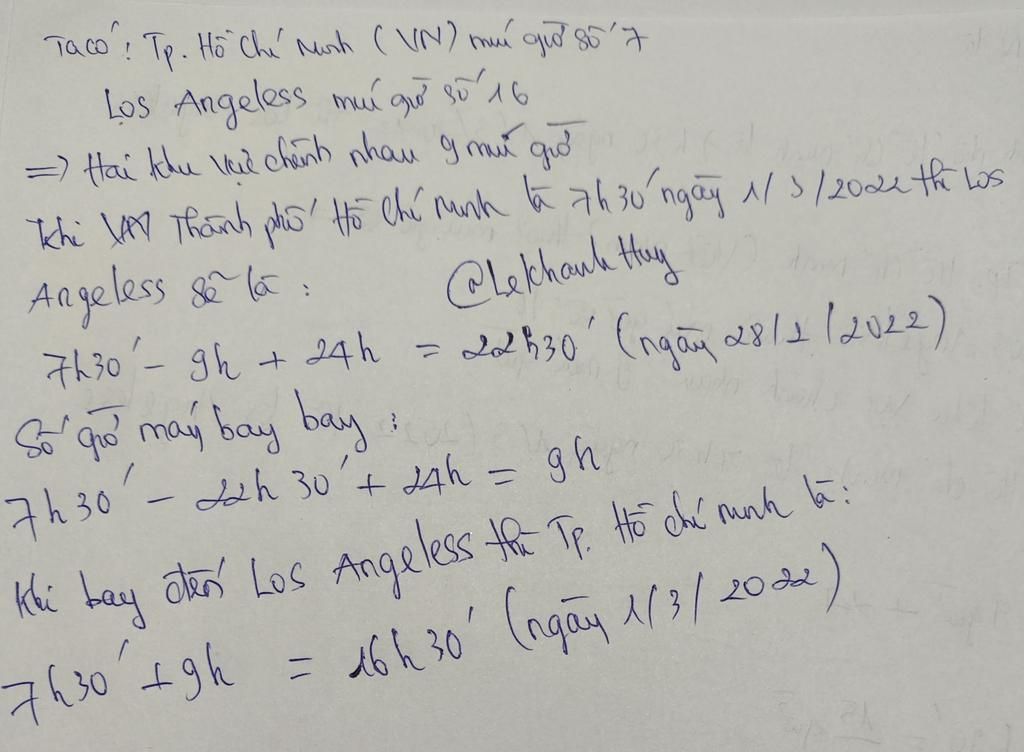 Ta có: Tp. Hồ Chí Minh (VN) múi giờ số 7
Los Angeless múi giờ số 16
=> Hai khu vực chênh nhau 9 múi giờ
Khi Thành phố Hồ Chí Minh là 7h30' ngày 1/3/2022 thì Los
Angeless sẽ là :
@LeKhanhHuy
7h30' - 9h + 24h = 22h30' (ngày 28/2/2022)
Số giờ máy bay bay :
7h30' - 22h30' + 24h = 9h
Khi bay đến Los Angeless thì Tp. Hồ Chí Minh là:
7h30' + 9h = 16h30' (ngày 1/3/2022)